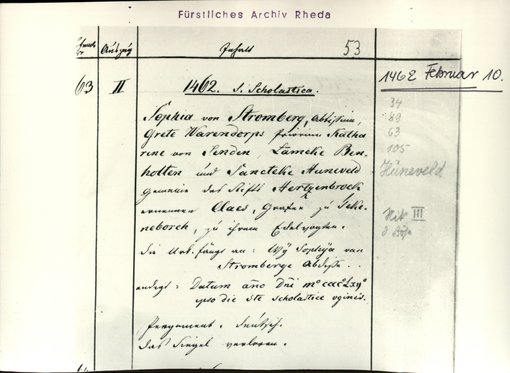 Fürstliches Archiv Rheda
Auszug
Inhalt
53
63 II 1462. S. Scholastica.
1462 Februar 10.
Sophia von Stromberg, Abtissin,
Grete Warendorps priorin Katha-
rine von Senden, Lameke Ben-
holten und Sancteke Huneveld
gemeine des Stifts Hertzenbrock
ernennen Claes, Grafen zu Teke-
neborch, zu ihrem Edelvogten.
Die Urk. fängt an: Wÿ Sophÿa van
Stromberge Abdisse . .
endigt: Datum año Dñi m°cccc°Lxij°
ipso die Ste Scholastice vginis.
Pergament. Deutsch.
das Siegel verloren.
34
89
63
105
Hüneveld
III